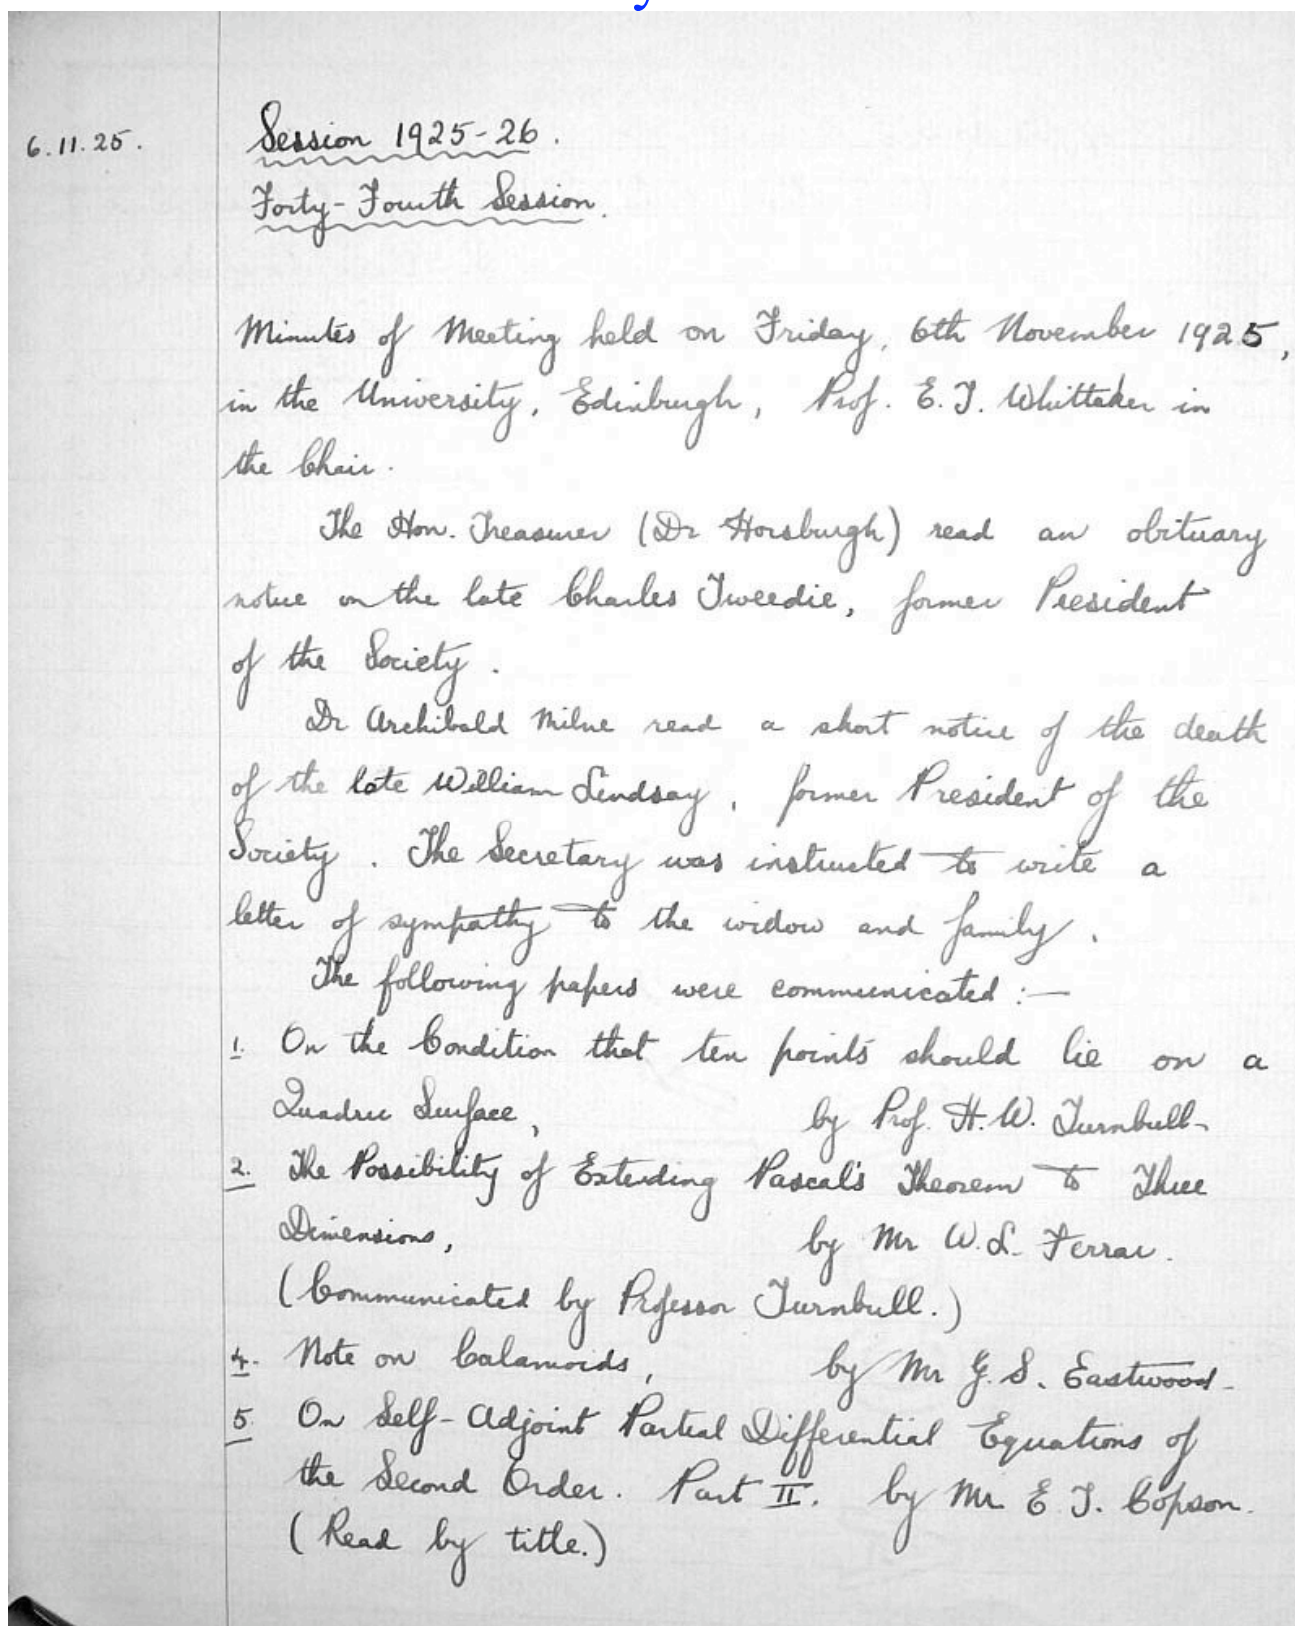 6.11.25.
Session 1925-26.
Forty-Fourth Session.
Minutes of Meeting held on Friday, 6th November 1925,
in the University, Edinburgh, Prof. E. T. Whittaker in
the Chair.
The Hon. Treasurer (Dr Horsburgh) read an obituary
notice on the late Charles Tweedie, former President
of the Society.
Dr Archibald Milne read a short notice of the death
of the late William Lindsay, former President of the
Society. The Secretary was instructed to write a
letter of sympathy to the widow and family.
The following papers were communicated :—
1. On the Condition that ten points should lie on a
Quadric Surface, by Prof. H. W. Turnbull.
2. The Possibility of Extending Pascal's Theorem to Three
Dimensions, by Mr W. L. Ferrar.
(Communicated by Professor Turnbull.)
4. Note on Calamoids, by Mr G. S. Eastwood.
5. On Self-Adjoint Partial Differential Equations of
the Second Order. Part II. by Mr E. T. Copson.
(Read by title.)